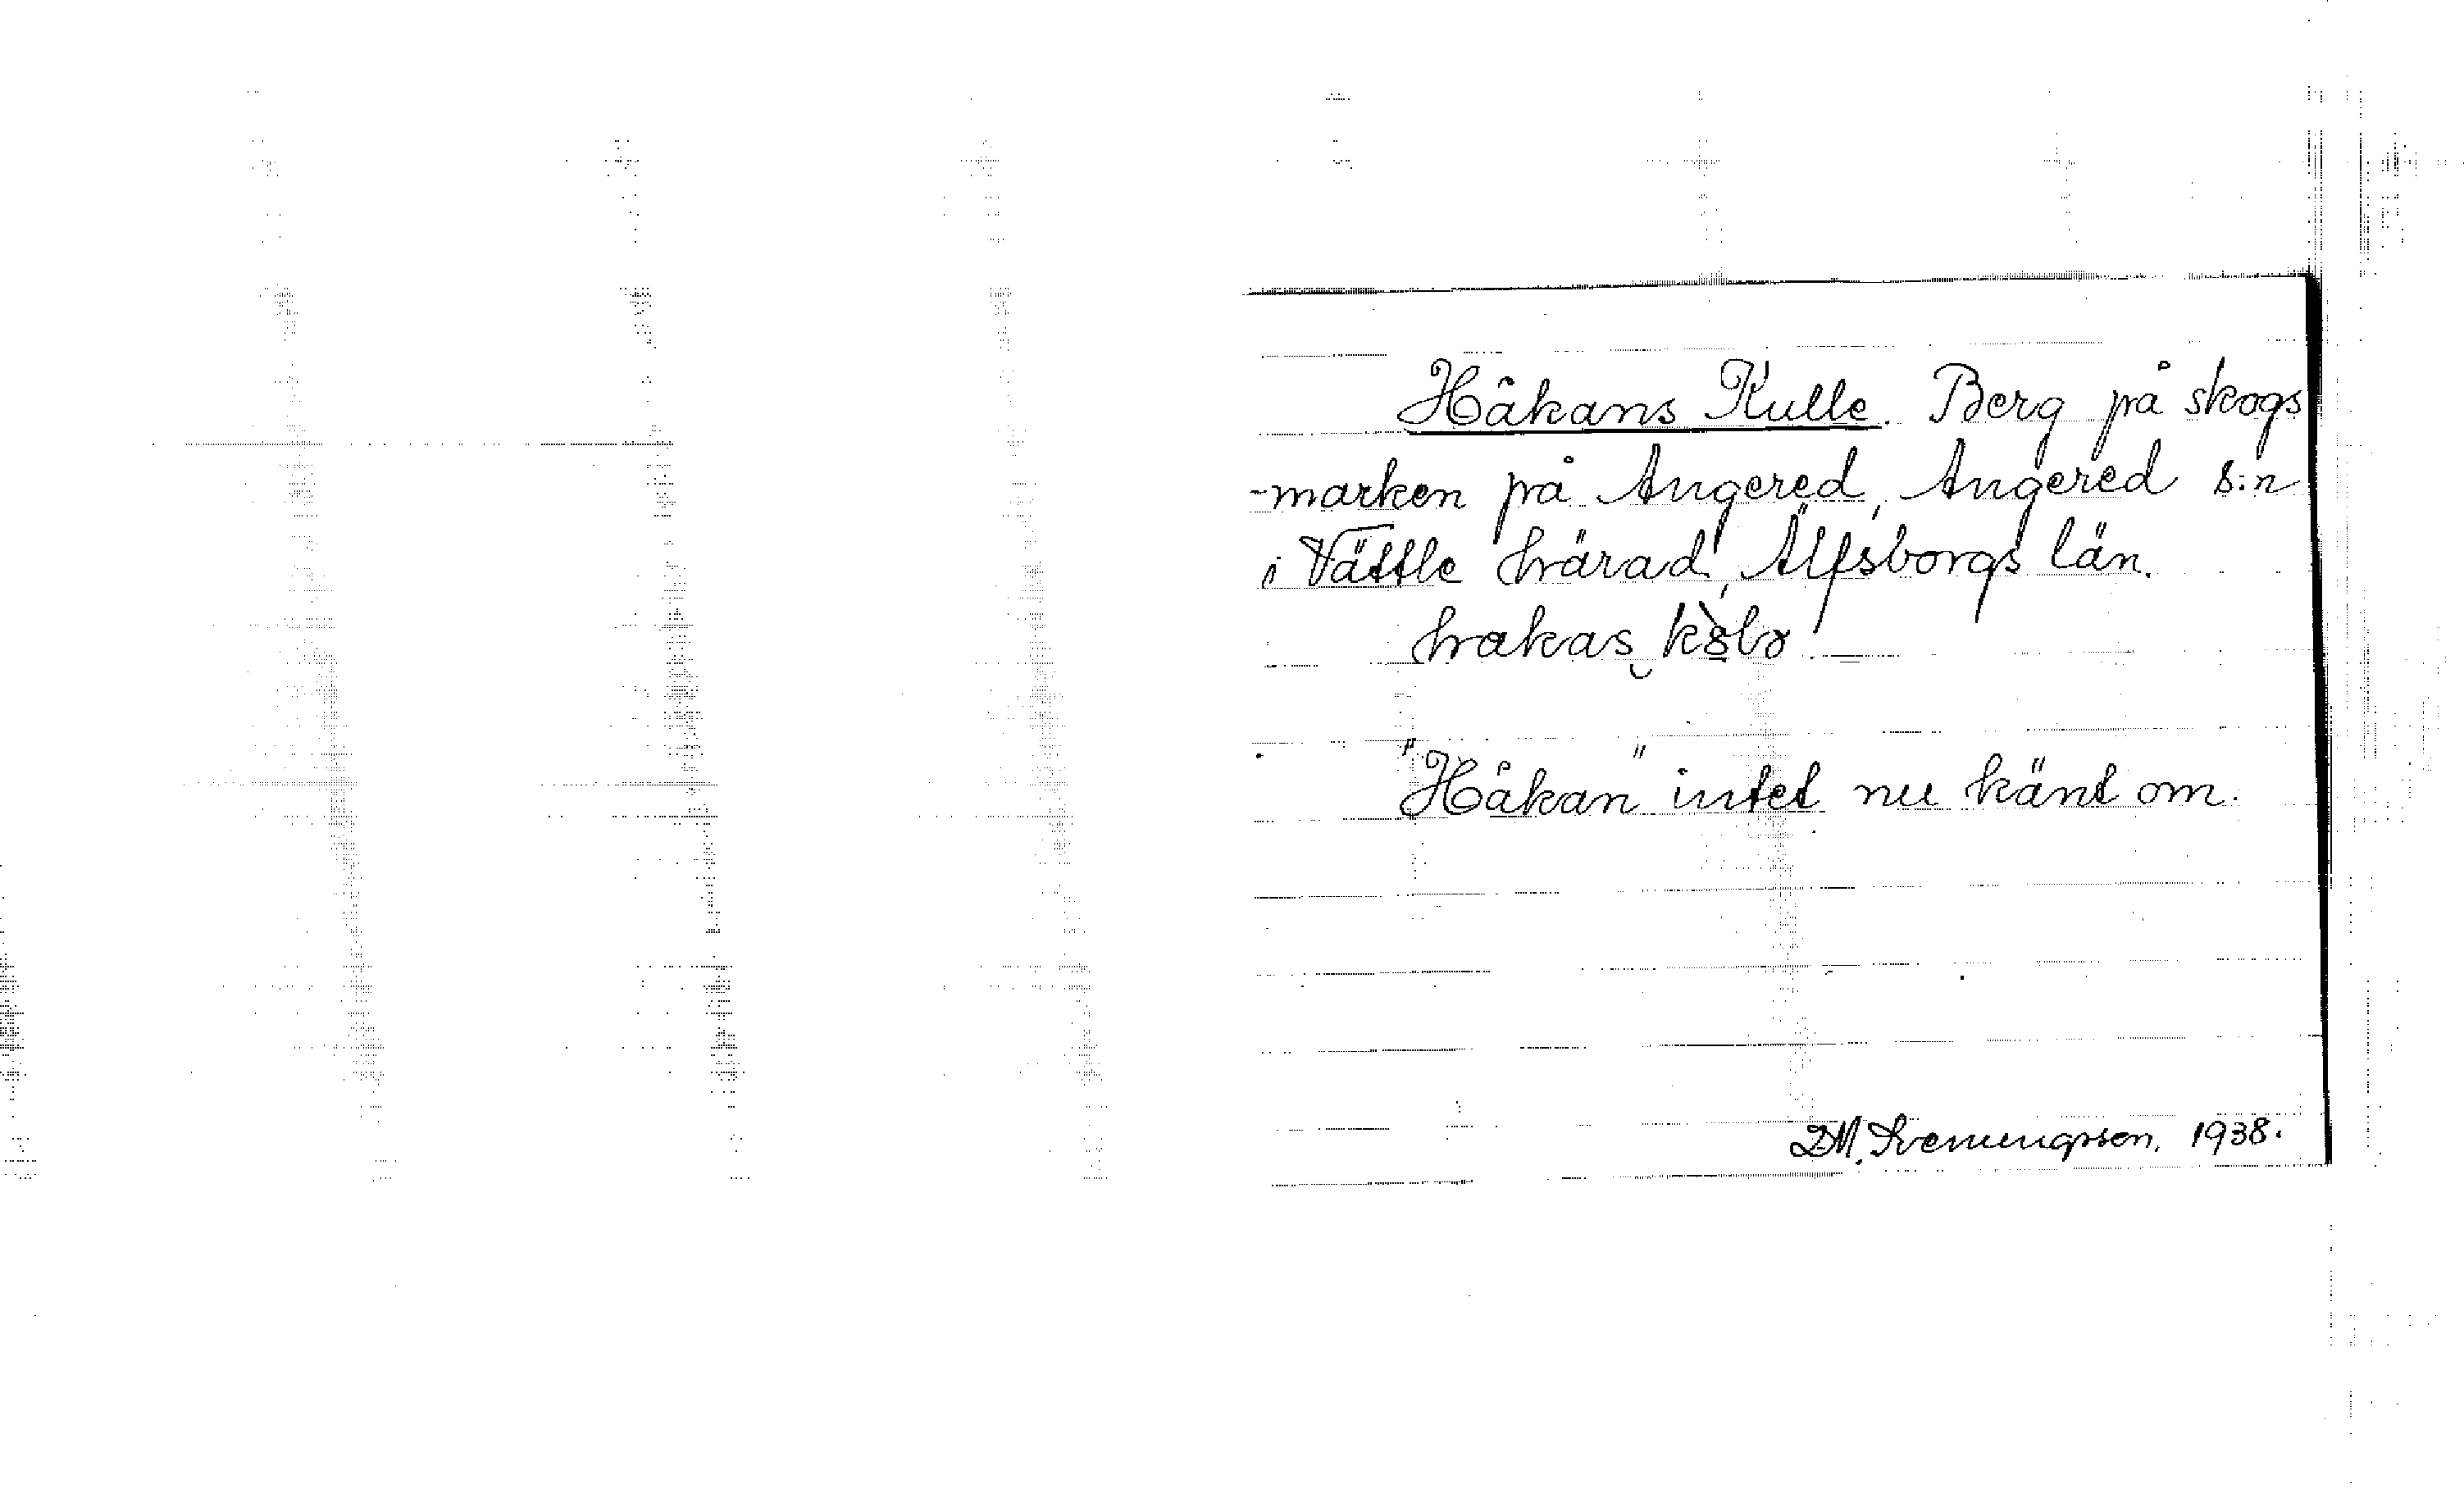 Håkans Kulle. Berg på skogs
-marken på Angered, Angered s:n
i Vättle härad, Älfsborgs län.
hakas kolo
"Håkan" intet nu känt om.
DM. 1938.